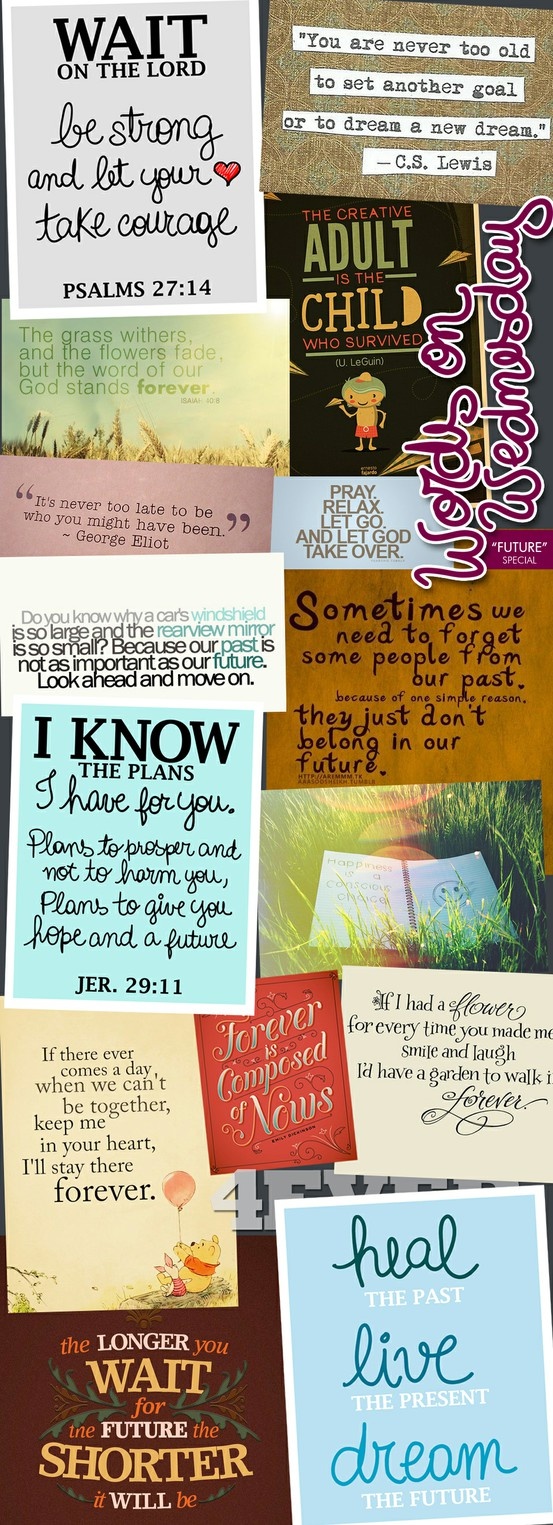 WAIT
ON THE LORD
be strong
and let your
take courage
PSALMS 27:14
"You are never too old
to set another goal
or to dream a new dream."
— C.S. Lewis
THE CREATIVE
ADULT
IS THE
CHILD
WHO SURVIVED
(U. LeGuin)
ernesto
fajardo
Words on
Wednesdays
"FUTURE"
SPECIAL
The grass withers,
and the flowers fade,
but the word of our
God stands forever.
ISAIAH 40:8
“It's never too late to be
who you might have been.”
~ George Eliot
PRAY.
RELAX.
LET GO.
AND LET GOD
TAKE OVER.
Do you know why a car's windshield
is so large and the rearview mirror
is so small? Because our past is
not as important as our future.
Look ahead and move on.
Sometimes we
need to forget
some people from
our past.
because of one simple reason.
they just don't
belong in our
future.
HTTP://AREMMM.TK
I KNOW
THE PLANS
I have for you.
Plans to prosper and
not to harm you,
Plans to give you
hope and a future
JER. 29:11
Happiness
is a
conscious
choice
If there ever
comes a day
when we can't
be together,
keep me
in your heart,
I'll stay there
forever.
Forever
is
Composed
of Nows
EMILY DICKINSON
If I had a flower
for every time you made me
smile and laugh
I'd have a garden to walk i
forever.
4EVER
the LONGER you
WAIT
for
the FUTURE the
SHORTER
it WILL be
heal
THE PAST
live
THE PRESENT
dream
THE FUTURE